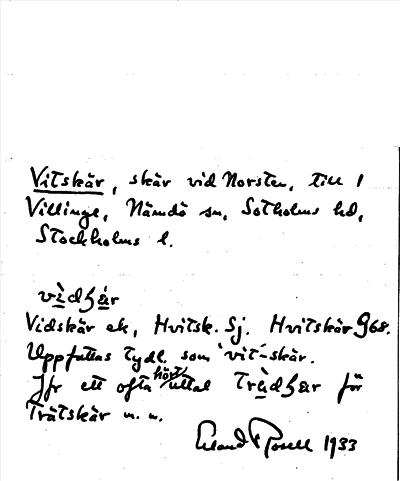 Vitskär, skär vid Norsten, till
Villinge, Nämdö sn, Sotholms hd,
Stockholms l.
vìdʒàr
Vidskär ek, Hvitsk. Sj. Hvitskär G68.
Uppfattas tydl. som 'vit-skär.
Jfr ett ofta hört uttal trädʒär för
Trätskär m. m.
Erland Rosell 1933